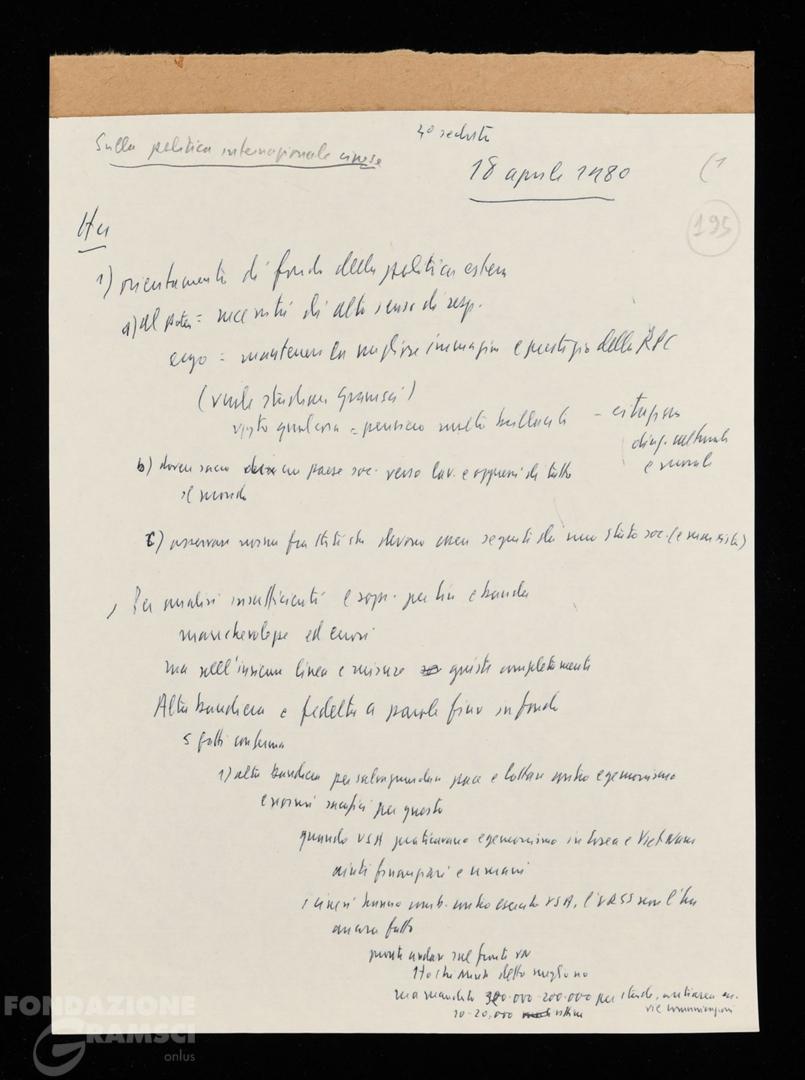 4ª seduta
Sulla politica internazionale cinese
18 aprile 1980
(1
195
Hu
1) orientamenti di fondo della politica estera
a) al potere = necessità di alto senso di resp.
ergo = mantenere la migliore immagine e prestigio della RPC
(vuole studiare Gramsci)
visto qualcosa = pensiero molto brillante
b) paese soc. verso lav. e oppressi di tutto
il mondo
c) osservare norme fra stati che devono essere seguiti da uno stato soc. (e marxista)
Per analisi insufficienti e sopr. per Lin e banda
manchevolezze ed errori
ma nell'insieme linea e misure giuste completamente
Alta bandiera e fedeltà a parole fino in fondo
5 fatti conferma
1) alta bandiera per salvaguardare pace e lottare contro egemonismo
enormi sacrifici per questo
quando USA praticavano egemonismo in Corea e Viet Nam
aiuti finanziari e umani
i cinesi hanno comb. contro esercito USA, l'URSS non l'ha
ancora fatto
pronti andare sul fronte VN
Ho chi Minh detto meglio no
ma mandati 300.000-200.000 per strade, antiaerea
vie comunicazioni
10-20.000 vittime
FONDAZIONE
GRAMSCI
onlus